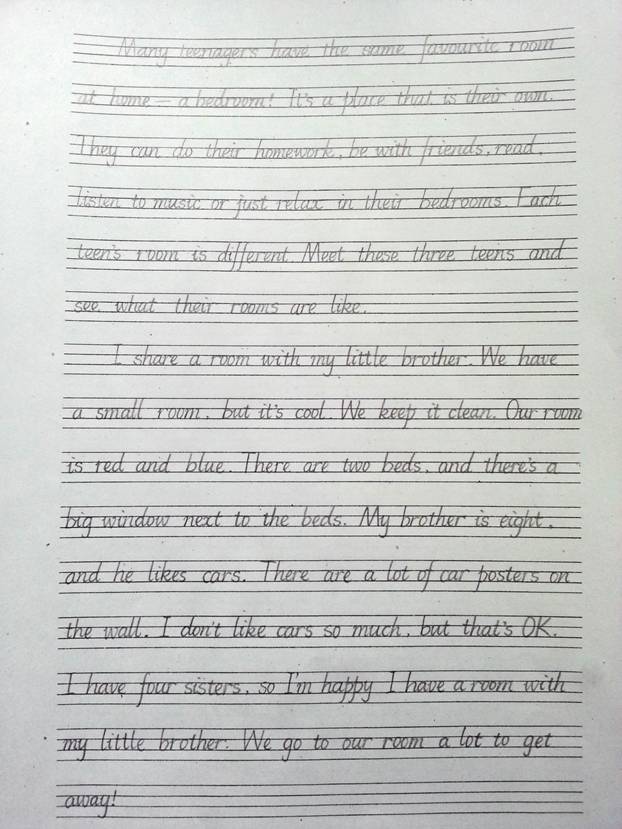 Many teenagers have the same favourite room
at home — a bedroom! It's a place that is their own.
They can do their homework, be with friends, read,
listen to music or just relax in their bedrooms. Each
teen's room is different. Meet these three teens and
see what their rooms are like.
I share a room with my little brother. We have
a small room, but it's cool. We keep it clean. Our room
is red and blue. There are two beds, and there's a
big window next to the beds. My brother is eight,
and he likes cars. There are a lot of car posters on
the wall. I don't like cars so much, but that's OK.
I have four sisters, so I'm happy I have a room with
my little brother. We go to our room a lot to get
away!